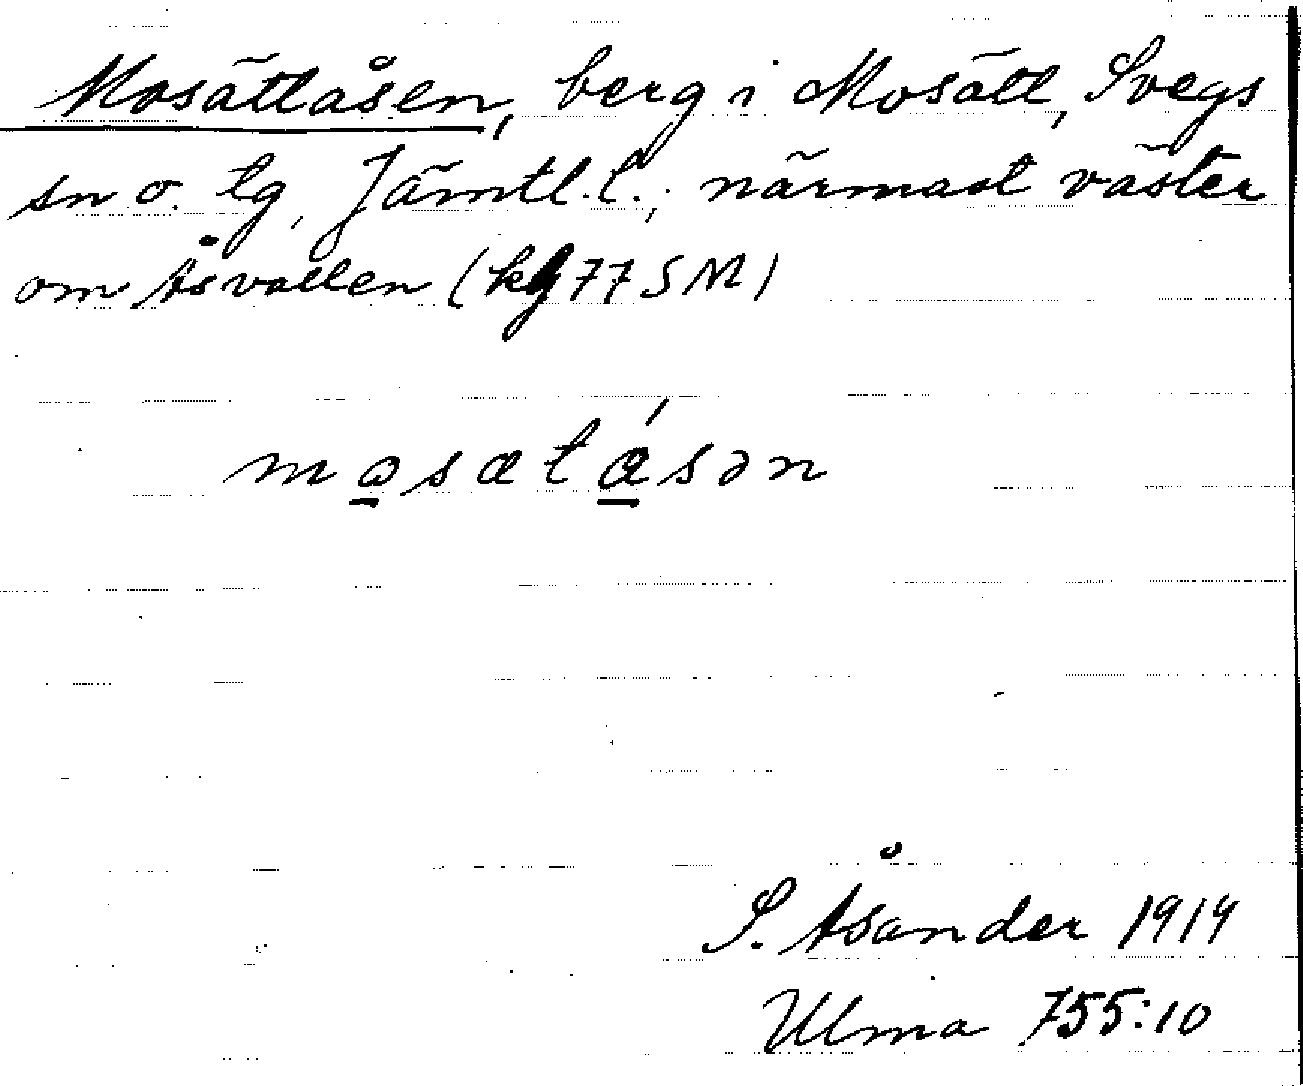 Mosättåsen, berg i Mosätt, Svegs
sn o. tg, Jämtl. l.; närmast väster
om Åsvallen (kbl 77 SM)
mosætåsən
S. Åsander 1919
Ulma 755:10